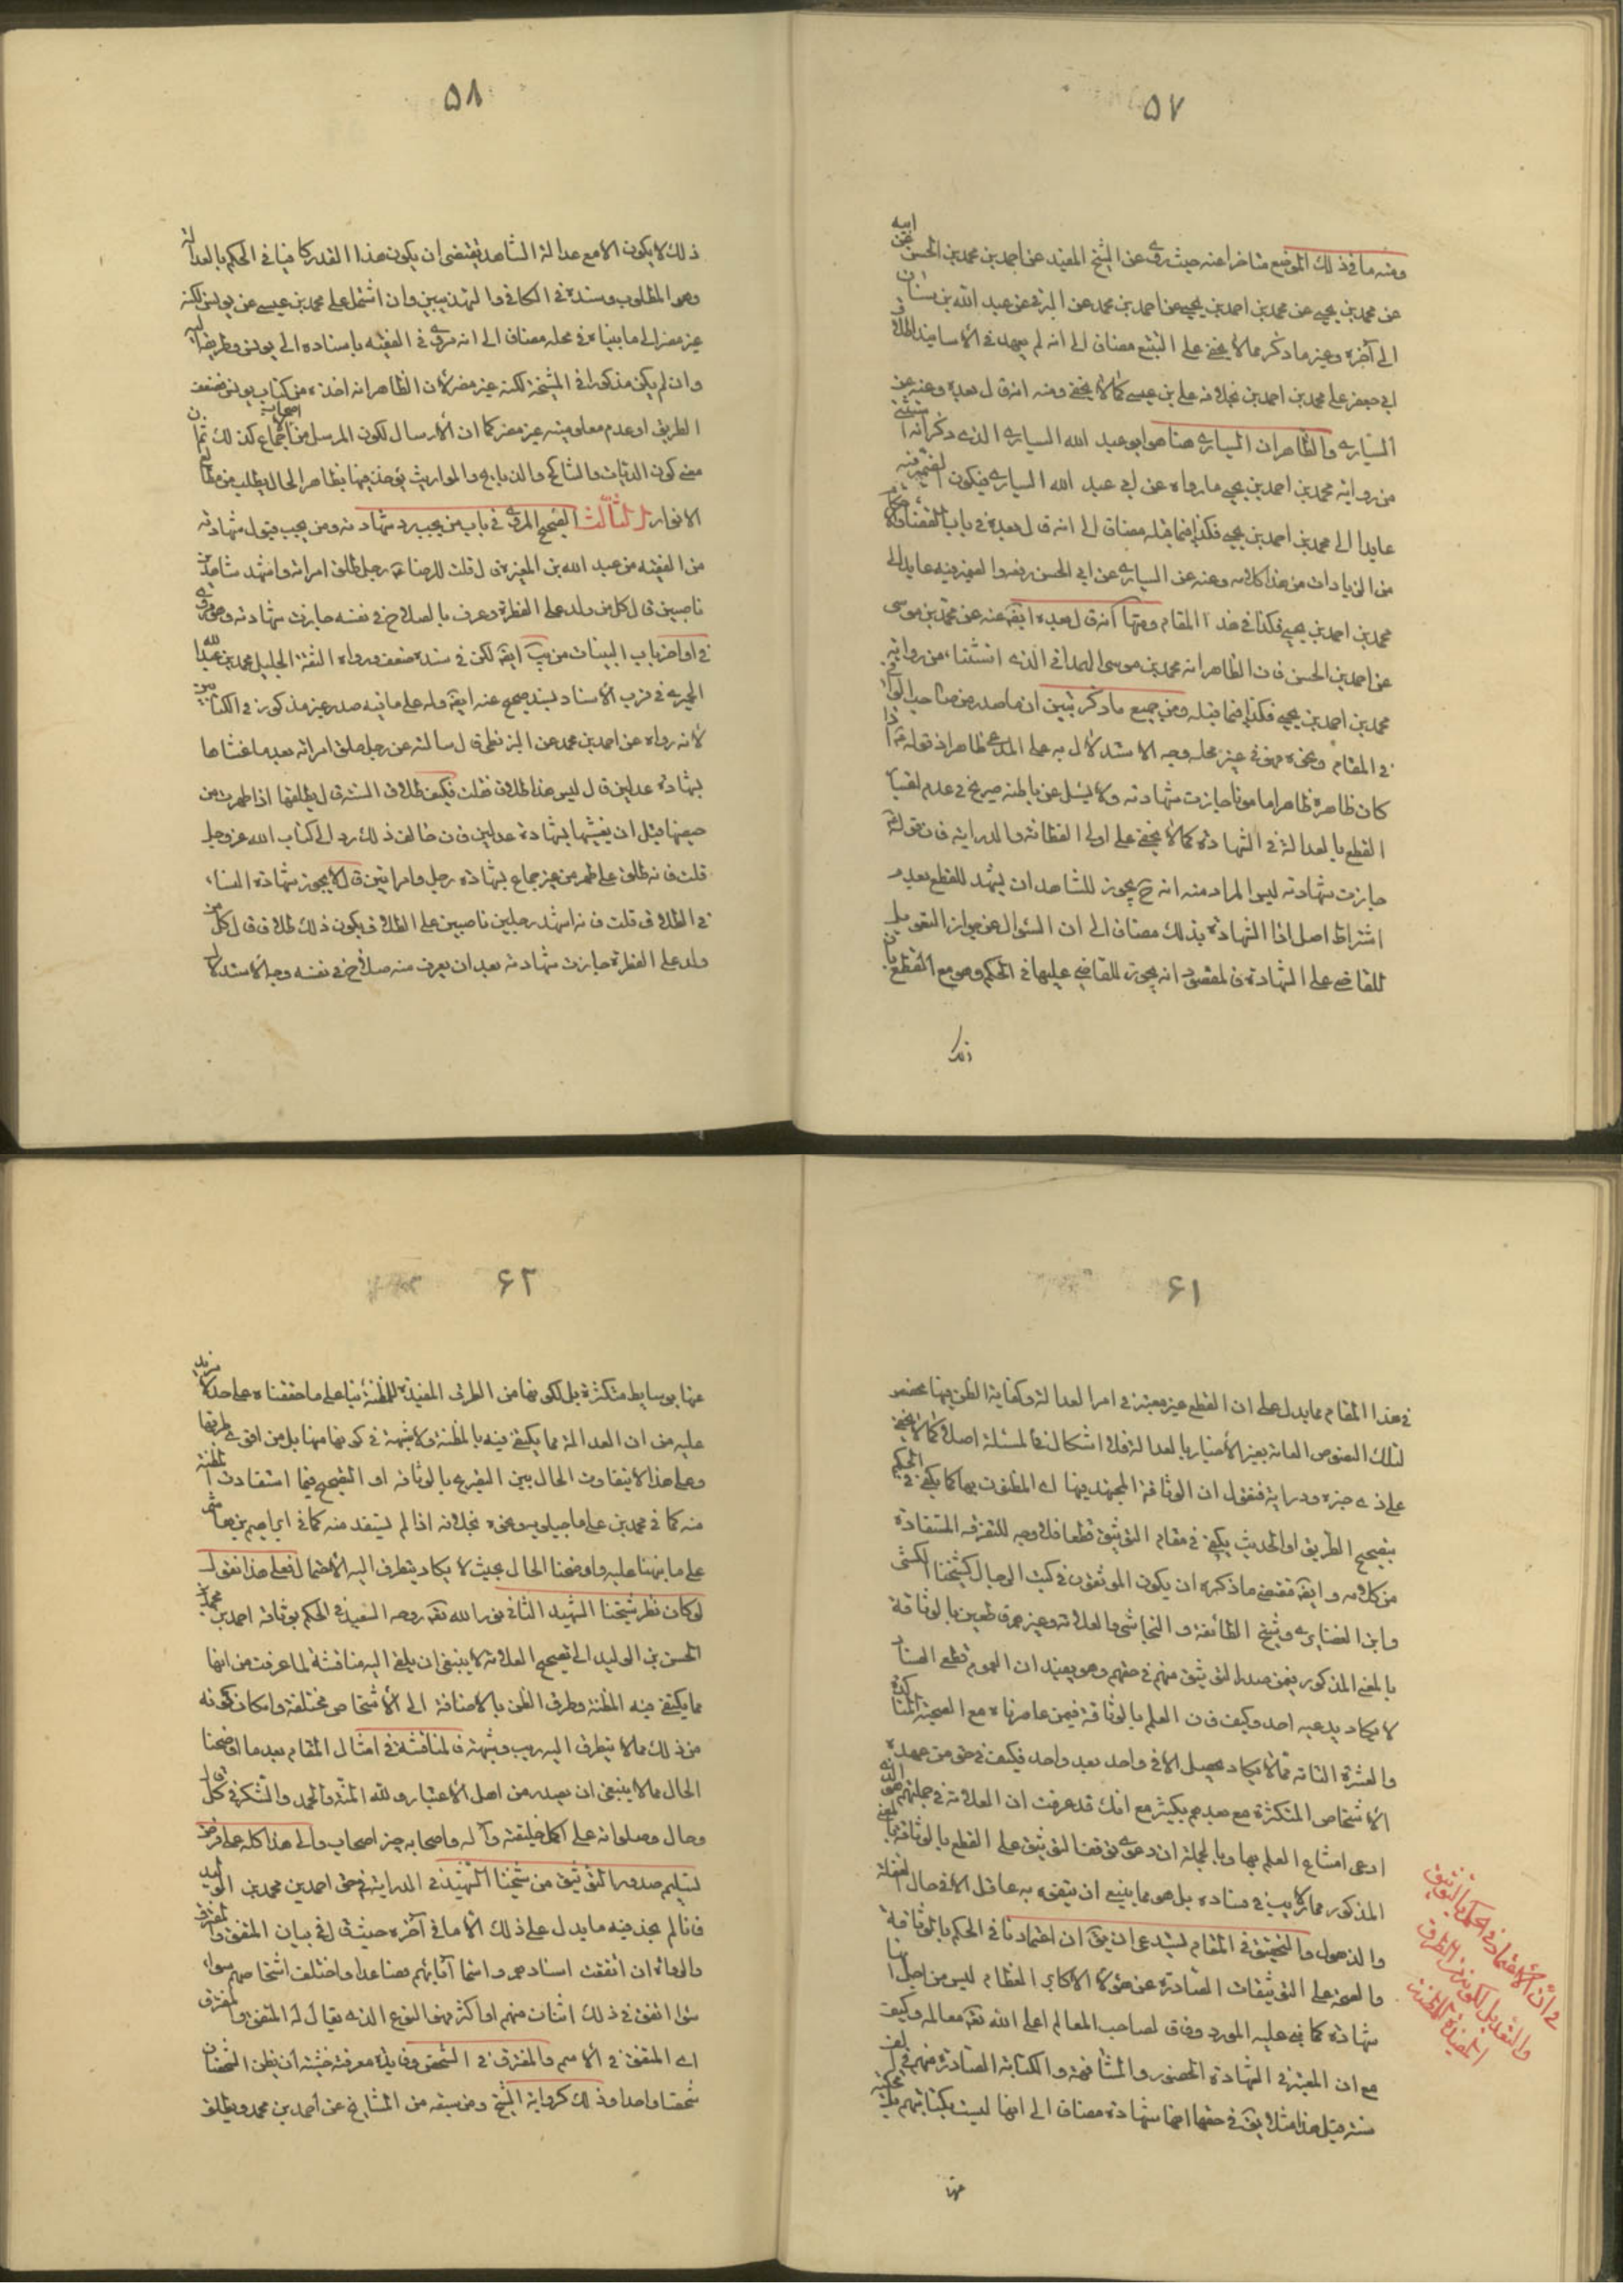 ۵۷
ومنه ما في ذلك الموضع متاخرا عنه حيث روى عن الشيخ المفيد عن احمد بن محمد بن الحسن عن ابيه
عن محمد بن يحيى عن محمد بن احمد بن يحيى عن احمد بن محمد عن البرقي عن عبد الله بن سنان
الى آخره وغير ما ذكر مما لا يخفى على المتتبع مضافا الى انه لم يعهد في الاسانيد اطلاق
ابي جعفر على محمد بن احمد بخلافه علي بن عيسى كما لا يخفى ومنه انه قال بعده وعنه عن
السياري والظاهر ان السياري هنا هو ابو عبد الله السياري الذي ذكر انه استثنى
من رواية محمد بن احمد بن يحيى ما رواه عن ابي عبد الله السياري فيكون الضمير فيه
عايدا الى محمد بن احمد بن يحيى فكذا فيما قبله مضافا الى انه قال بعده في باب القضايا
من الزيادات من هذا كلامه وعنه عن السياري عن ابي الحسن رفعه والضمير فيه عايد الى
محمد بن احمد بن يحيى فكذا في هذا المقام ومنها انه قال بعده ايضا عنه عن محمد بن موسى
عن احمد بن الحسن فان الظاهر انه محمد بن موسى الهمداني الذي استثناء من رواية
محمد بن احمد بن يحيى فكذا فيما قبله ومن جميع ما ذكر تبين ان ما صدر من صاحب الوافي
في المقام ونحوه مهو في غير محله وجه الاستدلال به على المدعى ظاهر اذ قوله ع اذا
كان ظاهره ظاهرا مامونا جازت شهادته ولا يسئل عن باطنه صريح في عدم اعتبار
القطع بالعدالة في الشهادة كما لا يخفى على اولي الفطانة والدراية فان قوله ع
جازت شهادته ليس المراد منه انه ح يجوز للشاهد ان يشهد للقطع بعدم
اشتراط اصل اذا الشهادة بذلك مضافا الى ان السئوال عن جواز التعويل
للقاضي على الشهادة فالمقصود انه يجوز للقاضي عليها في الحكم وهو مع القطع بان
ذلك
۵۸
ذلك لا يكون الا مع عدالة الشاهد يقتضى ان يكون هذا القدر كافيا في الحكم بالعدالة
وهو المطلوب وسنده في الكافي والتهذيبين وان اشتمل على محمد بن عيسى عن يونس لكنه
غير مضر الى ما بيناه في محله مضافا الى انه مروى في الفقيه باسناده الى يونس وطريقه اليه
وان لم يكن مذكورا في المشيخة لكنه غير مضر لان الظاهر انه اخذه من كتاب يونس فضعف
الطريق او عدم معلوميته غير مضر كما ان الارسال لكون المرسل من اصحاب الاجماع كذلك ثم ان
معنى كون الديات والمناكح والذبايح والمواريث يوخذ فيها بظاهر الحال يطلب من مطالع
الانوار الثالث الصحيح المروى في باب من يجب رد شهادته ومن يجب قبول شهادته
من الفقيه عن عبد الله بن المغيرة قال قلت للرضا ع رجل طلق امراته واشهد شاهدين
ناصبيين قال كل من ولد على الفطرة وعرف بالصلاح في نفسه جازت شهادته وهو مروى
في اواخر باب البينات من يب ايضا لكن في سنده ضعف ورواه الثقة الجليل محمد بن عبد الله
الحميري في قرب الاسناد بسند صحيح عنه ايضا وله على ما فيه صدر غير مذكور في الكتابين
لانه رواه عن احمد بن محمد عن البزنطي قال سالته عن رجل طلق امراته بعد ما غشاها
بشهادة عدلين قال ليس هذا طلاق فقلت فكيف طلاق السنة قال يطلقها اذا طهرت من
حيضها قبل ان يغشيها بشهادة عدلين فان خالف ذلك رد الى كتاب الله عز وجل
قلت فانه طلق على طهر من غير جماع بشهادة رجل وامراتين قال لا يجوز شهادة النساء
في الطلاق قلت فانه اشهد رجلين ناصبيين على الطلاق يكون ذلك طلاق قال كل من
ولد على الفطرة جازت شهادته بعد ان يعرف منه صلاح في نفسه وجه الاستدلال
۶۱
في هذا المقام مما يدل على ان القطع غير معتبر في امر العدالة وكفاية الظن فيها مخصص
لتلك النصوص العامة بغير الاخبار بالعدالة فلا اشكال في المسئلة اصلا كما لا يخفى
على ذي خبرة ودراية فنقول ان الوثاقة المجتهد فيها اى المظنون بها كما يكفى في الحكم
بتصحيح الطريق او الحديث يكفى في مقام التوثيق قطعا فلا وجه للتفرقة المستفادة
من كلامه وايضا مقتضى ما ذكره ان يكون الموثقون في كتب الرجال كشيخنا الكشي
وابن الغضايري وشيخ الطائفة والنجاشي والعلامة وغيرهم قاطعين بالوثاقة
بالمعنى المذكور فيمن صدر التوثيق منهم في حقهم وهو بعيد ان الجزم قطعي الفساد
لا يكاد يدعيه احد وكيف فان العلم بالوثاقة فيمن عاصرناه مع الصحبة المتاكدة
والعشرة التامة مما لا يكاد يحصل الا في واحد بعد واحد فكيف في حق من عهده
الاشخاص المتكثرة مع بعدهم بكثير مع انك قد عرفت ان العلامة في جملتهم هو الذي
ادعى امتناع العلم بها وبالجملة ان دعوى توقف التوثيق على القطع بالوثاقة بالمعنى
المذكور مما لا ريب في فساده بل هو مما ينبغي ان يتفوه به عاقل الا في حال الغفلة
والذهول والتحقيق في المقام يستدعى ان يق ان اعتمادنا في الحكم بالوثاقة
والصحة على التوثيقات الصادرة عن هؤلاء الاكابر العظام ليس من اجل انها
شهادة كما في عليه المورد وفاقا لصاحب المعالم اعلى الله تعالى معالمه وكيف
مع ان المعتبر في الشهادة الحضور والمشافهة والكتابة الصادرة منهم في الف
سنة قبل هذا مثلا يق في حقها انها شهادة مضافا الى انها ليست بكتابتهم بل محكية
عنها
في ان الاعتماد في الحكم بالتوثيق
والتعديل لكونه من الطرق
المفيدة للمظنة
۶۲
عنها بوسايط متكثرة بل لكونها من الطرق المفيدة للمظنة بناء على ما حققناه على حدة لا مزيد
عليه من ان العدالة مما يكتفى فيه بالمظنة ولا شبهة في كونها منها بل من اقوى طرقها
وعلى هذا لا يتفاوت الحال بين التصريح بالوثاقة او التصحيح فيما استفادت المظنة
منه كما في محمد بن علي ماجيلويه ونحوه بخلافه اذا لم يستفد منه كما في ابراهيم بن هاشم
على ما نبهنا عليه واوضحنا الحال بحيث لا يكاد يتطرق اليه الاحتمال فعلى هذا نقول
لو كان نظر شيخنا الشهيد الثاني نور الله تعالى روحه السعيد في الحكم بوثاقة احمد بن محمد بن
الحسن بن الوليد الى تصحيح العلامة لا ينبغي ان يلقى اليه مناقشة لما عرفت من انها
مما يكتفى فيه المظنة وطرق الظن بالاضافة الى الاشخاص مختلفة وامكان كونه
من ذلك مما لا يتطرق اليه ريب وشبهة فالمناقشة في امثال المقام بعد ما اوضحنا
الحال مما لا ينبغي ان يصدر من اهل الاعتبار ولله المنة والحمد والشكر في كل آن
وحال وصلواته على اكمل خليقته وآله واصحابه خير اصحاب وآل هذا كله على فرض
تسليم صدور التوثيق من شيخنا الشهيد في الدراية في حق احمد بن محمد بن الوليد
فانا لم نجد فيه ما يدل على ذلك الا ما في آخره حيث قال في بيان المتفق والمفترق
والرواة ان اتفقت اسماءهم واسماء آبائهم فصاعدا واختلفت اشخاصهم سواء
سواء اتفق في ذلك اثنان منهم او اكثر فهو النوع الذي يقال له المتفق والمفترق
اى المتفق في الاسم والمفترق في الشخص وفايدة معرفته خشية ان يظن الشخصان
شخصا واحدا وذلك كرواية الشيخ ومن سبقه من المشايخ عن احمد بن محمد ويطلق